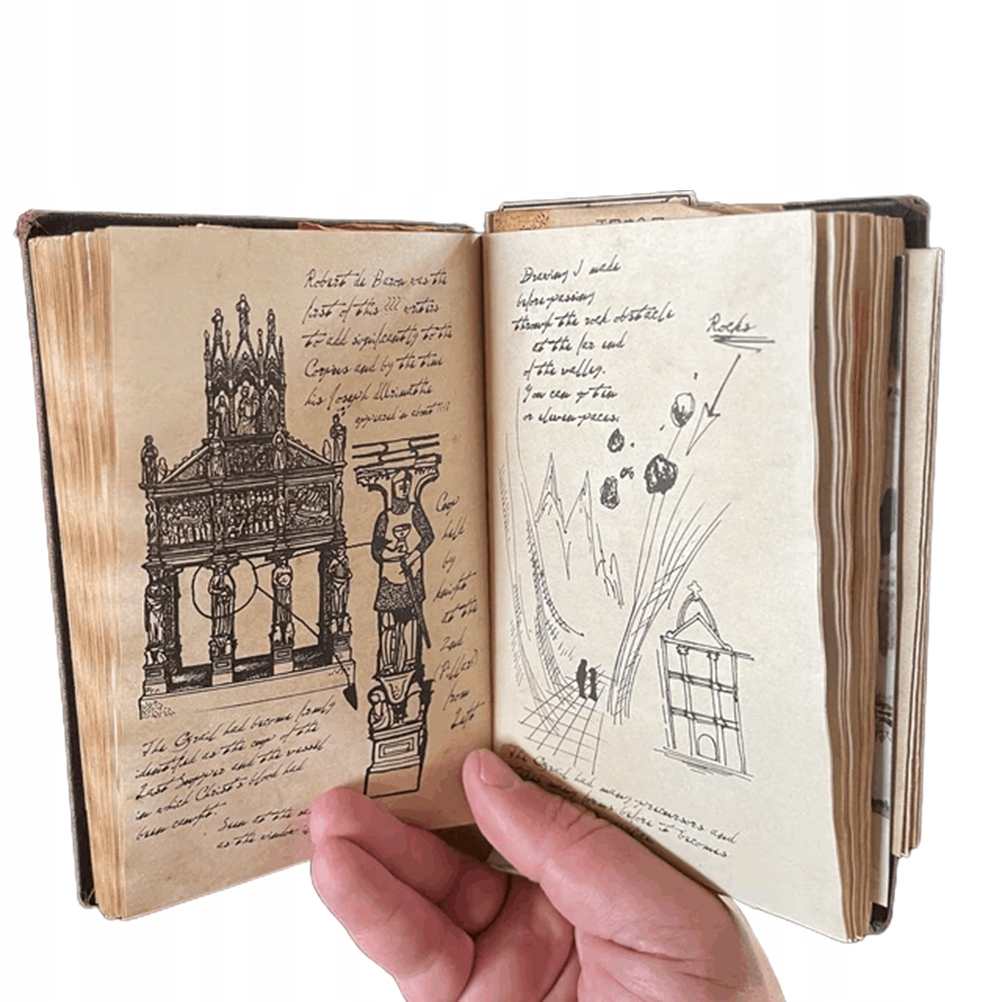 Robert de Baron was the
first of this ??? writers
to add significantly to the
Corpus and by the time
his Joseph
appeared in about
Cup
held
by
knight
at the
2nd
(Pillar?)
from
Left
The Grail had become firmly
identified as the cup of the
Last Supper and the vessel
in which Christ's blood had
been caught.
Seen at the
as the window
Drawing I made
before passing
through the rock obstacle
at the far end
of the valley.
You can go ten
or eleven paces.
Rocks
The Grail had many precursors and
forms before it becomes